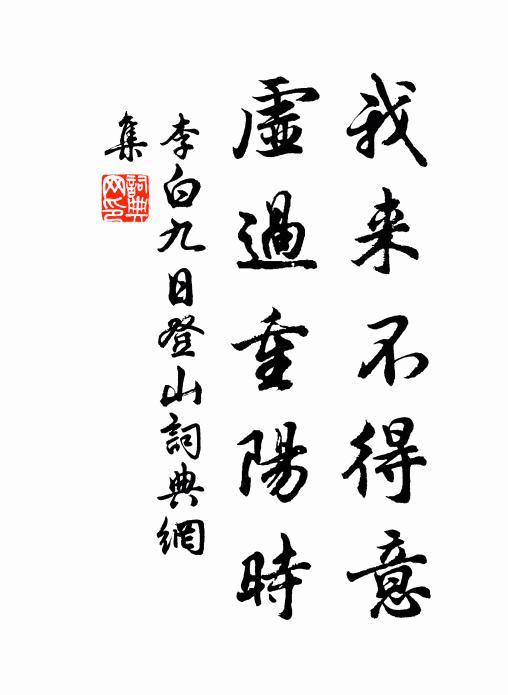 我来不得意
虛過重陽時
李白九日登山詞典網
集
詞典
网印